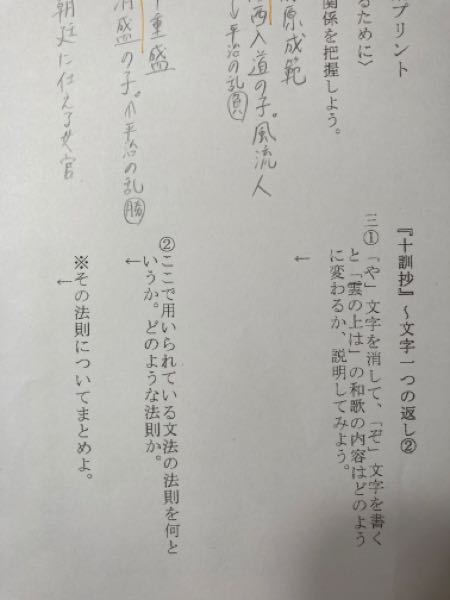 プリント
るために〉
関係を把握しよう。
原成範
西入道の子。風流人
↳平治の乱負
重盛
清盛の子。⇐平治の乱勝
朝廷に仕える女官
『十訓抄』～文字一つの返し②
三①「や」文字を消して、「ぞ」文字を書く
と「雲の上は」の和歌の内容はどのよう
に変わるか、説明してみよう。
←
②ここで用いられている文法の法則を何と
いうか。どのような法則か。
←
※その法則についてまとめよ。
←